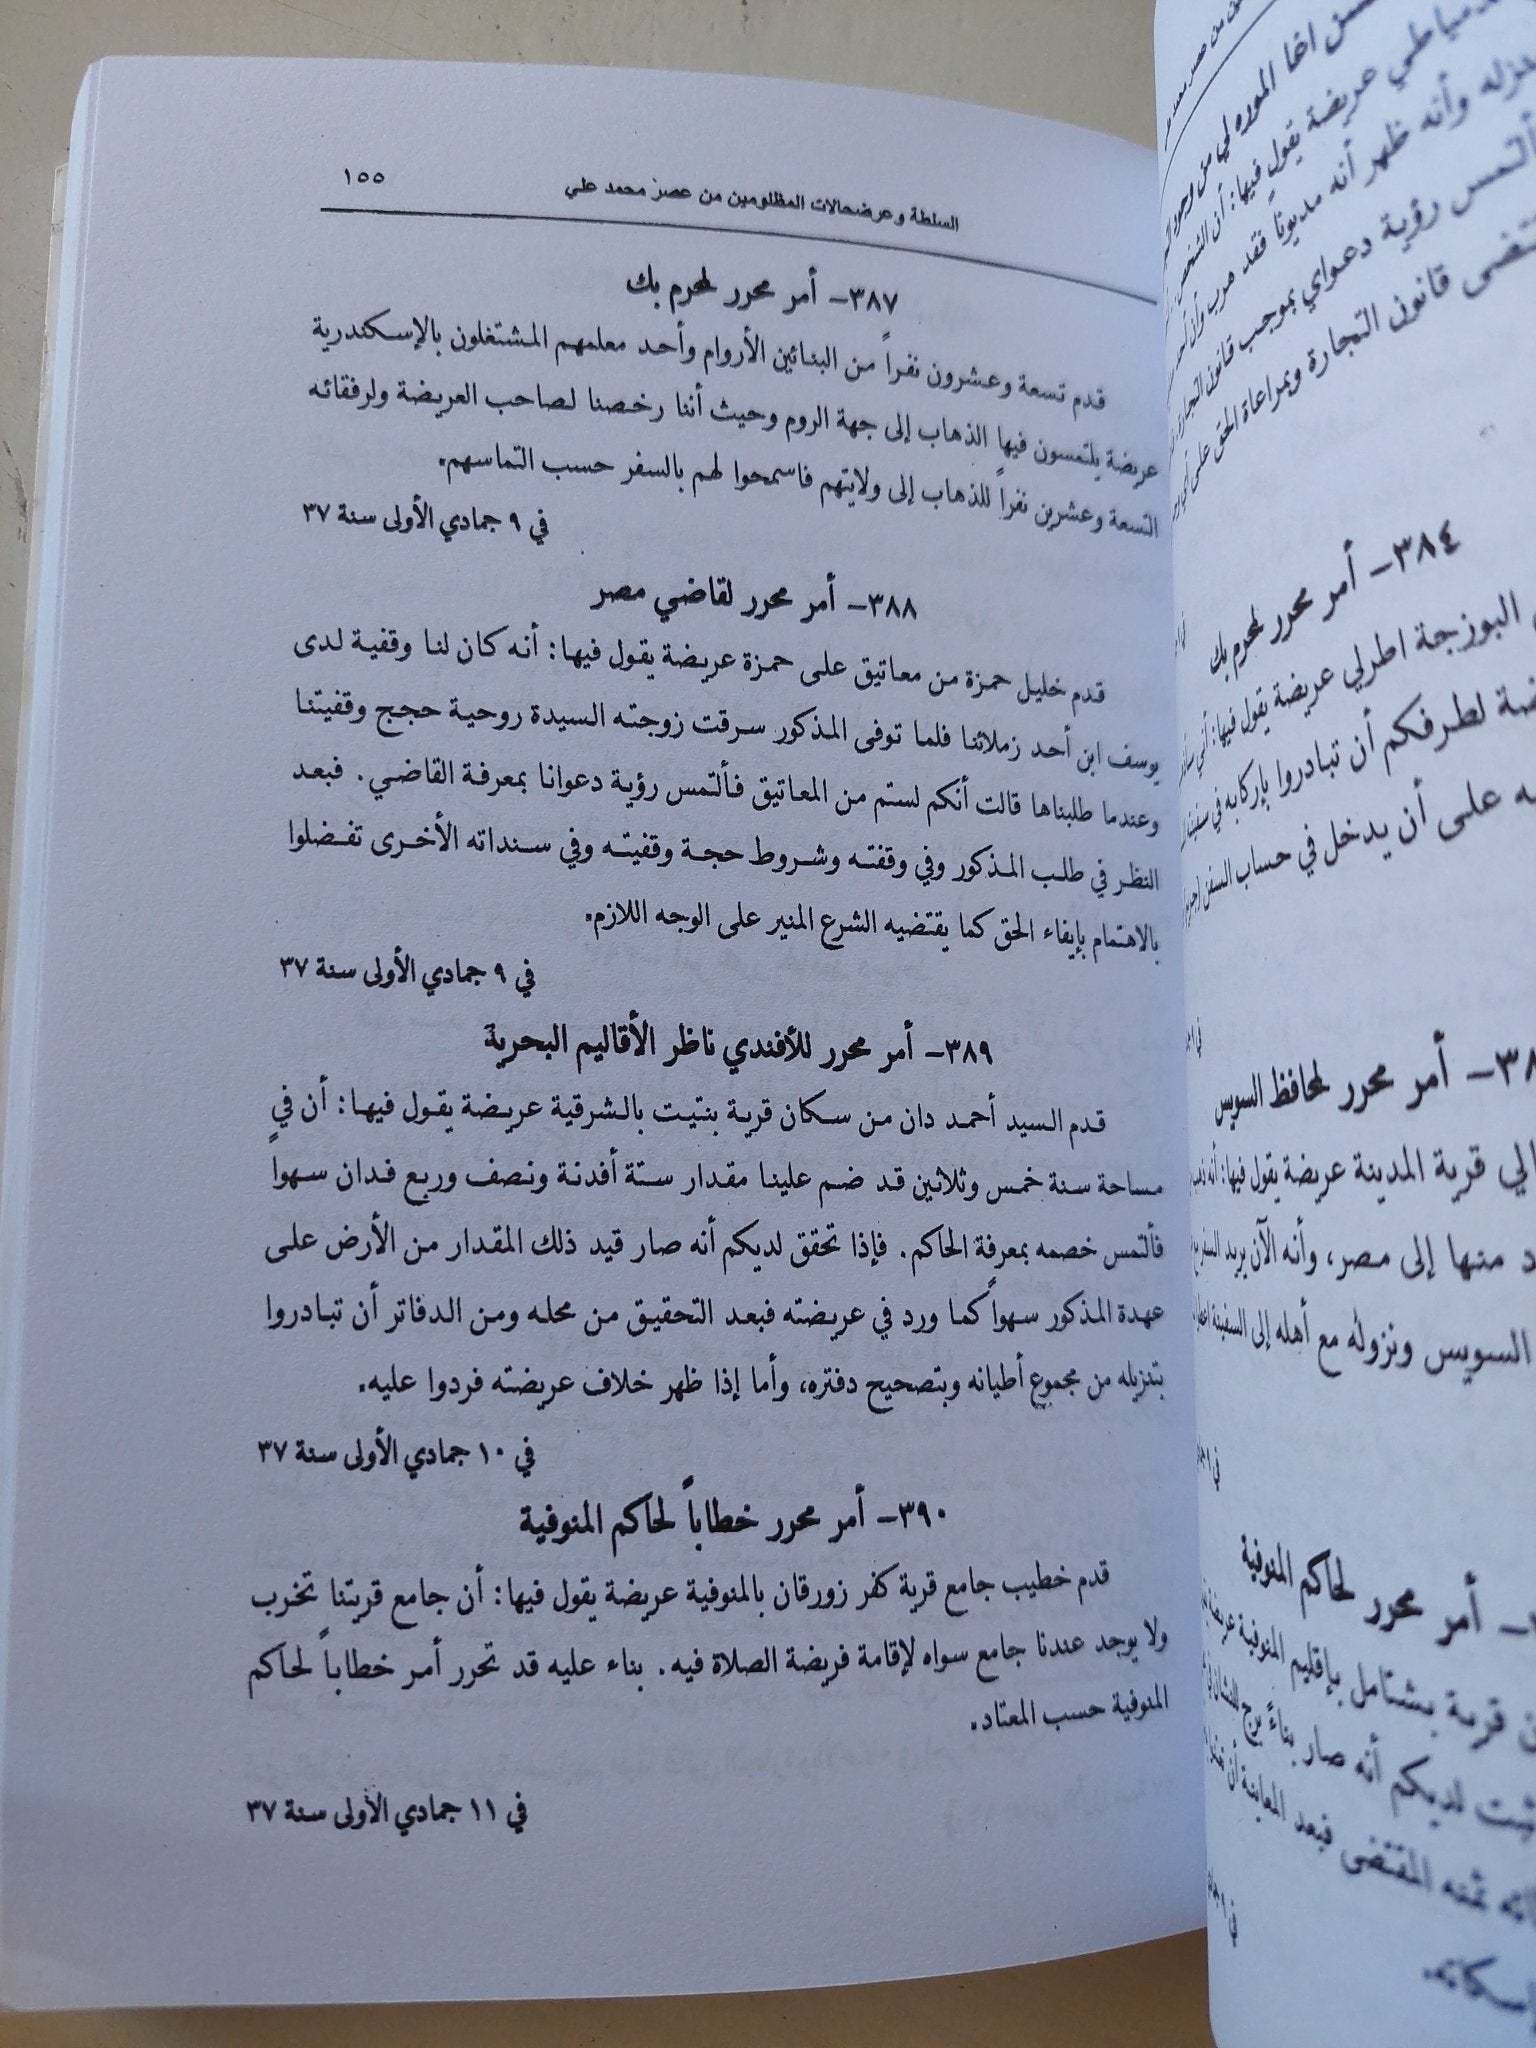 السلطة وعرضحالات المظلومين من عصر محمد علي
١٥٥
٣٨٧- أمر محرر لمحرم بك
قدم تسعة وعشرون نفراً من البنائين الأروام وأحد معلمهم المشتغلون بالإسكندرية
عريضة يلتمسون فيها الذهاب إلى جهة الروم وحيث أننا رخصنا لصاحب العريضة ولرفقائه
التسعة وعشرين نفراً للذهاب إلى ولايتهم فاسمحوا لهم بالسفر حسب التماسهم.
في ٩ جمادي الأولى سنة ٣٧
٣٨٨- أمر محرر لقاضي مصر
قدم خليل حمزة من معاتيق على حمزة عريضة يقول فيها: أنه كان لنا وقفية لدى
يوسف ابن أحد زملائنا فلما توفى المذكور سرقت زوجته السيدة روحية حجج وقفيتنا
وعندما طلبناها قالت أنكم لستم من المعاتيق فألتمس رؤية دعوانا بمعرفة القاضي. فبعد
النظر في طلب المذكور وفي وقفته وشروط حجة وقفيته وفي سنداته الأخرى تفضلوا
بالاهتمام بإيفاء الحق كما يقتضيه الشرع المنير على الوجه اللازم.
في ٩ جمادي الأولى سنة ٣٧
٣٨٩- أمر محرر للأفندي ناظر الأقاليم البحرية
قدم السيد أحمد دان من سكان قرية بنتيت بالشرقية عريضة يقول فيها: أن في
مساحة سنة خمس وثلاثين قد ضم علينا مقدار ستة أفدنة ونصف وربع فدان سهواً
فألتمس خصمه بمعرفة الحاكم. فإذا تحقق لديكم أنه صار قيد ذلك المقدار من الأرض على
عهدة المذكور سهواً كما ورد في عريضته فبعد التحقيق من محله ومن الدفاتر أن تبادروا
بتنزيله من مجموع أطيانه وبتصحيح دفتره، وأما إذا ظهر خلاف عريضته فردوا عليه.
في ١٠ جمادي الأولى سنة ٣٧
٣٩٠- أمر محرر خطاباً لحاكم المنوفية
قدم خطيب جامع قرية كفر زورقان بالمنوفية عريضة يقول فيها: أن جامع قريتنا تخرب
ولا يوجد عندنا جامع سواه لإقامة فريضة الصلاة فيه. بناء عليه قد تحرر أمر خطاباً لحاكم
المنوفية حسب المعتاد.
في ١١ جمادي الأولى سنة ٣٧
اغا الموره لي من وجود
عريضة يقول فيها: أن الشخص
وأنه ظهر أنه مديوناً فقد هرب وأن أحد
رؤية دعواي بموجب قانون التجارة
قانون التجارة وبمراعاة الحق على أي
٣٨٤- أمر محرر لمحرم بك
البوزجة اطرلي عريضة يقول فيها: أنني
لطرفكم أن تبادروا بإركابه في سفينة
على أن يدخل في حساب السفن
أمر محرر لمحافظ السويس
قرية المدينة عريضة يقول فيها: أنه
منها إلى مصر، وأنه الآن يريد السفر
السويس ونزوله مع أهله إلى السفينة
أمر محرر لحاكم المنوفية
قرية بشتامل بإقليم المنوفية عريضة
لديكم أنه صار بناء برج
ثمنه المقتضى فبعد المعاينة أن